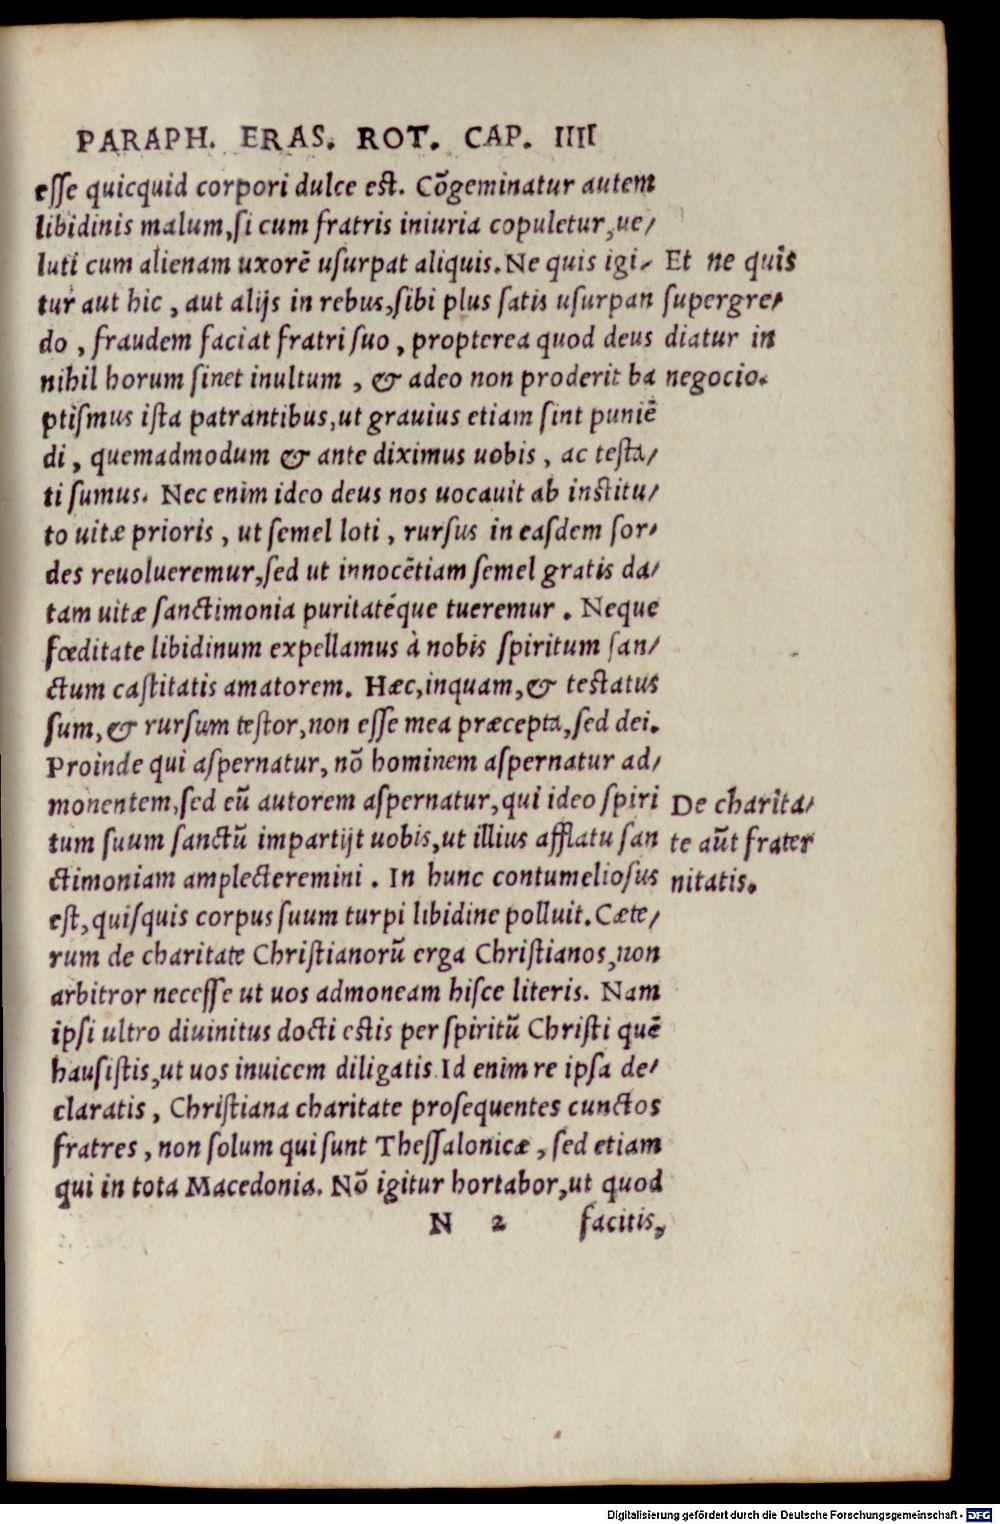 PARAPH. ERAS. ROT. CAP. IIII
esse quicquid corpori dulce est. Cõgeminatur autem
libidinis malum, si cum fratris iniuria copuletur, ue/
luti cum alienam uxorẽ usurpat aliquis. Ne quis igi/
tur aut hic, aut alijs in rebus, sibi plus satis usurpan
do, fraudem faciat fratri suo, propterea quod deus
nihil horum sinet inultum, & adeo non proderit ba
ptismus ista patrantibus, ut grauius etiam sint puniẽ
di, quemadmodum & ante diximus uobis, ac testa/
ti sumus. Nec enim ideo deus nos uocauit ab institu/
to uitæ prioris, ut semel loti, rursus in easdem sor/
des reuolueremur, sed ut innocẽtiam semel gratis da/
tam uitæ sanctimonia puritatéque tueremur. Neque
fœditate libidinum expellamus à nobis spiritum san/
ctum castitatis amatorem. Hæc, inquam, & testatus
sum, & rursum testor, non esse mea præcepta, sed dei.
Proinde qui aspernatur, nõ hominem aspernatur ad/
monentem, sed eũ autorem aspernatur, qui ideo spiri
tum suum sanctũ impartijt uobis, ut illius afflatu san
ctimoniam amplecteremini. In hunc contumeliosus
est, quisquis corpus suum turpi libidine polluit. Cæte/
rum de charitate Christianorũ erga Christianos, non
arbitror necesse ut uos admoneam hisce literis. Nam
ipsi ultro diuinitus docti estis per spiritũ Christi quẽ
hausistis, ut uos inuicem diligatis. Id enim re ipsa de/
claratis, Christiana charitate prosequentes cunctos
fratres, non solum qui sunt Thessalonicæ, sed etiam
qui in tota Macedonia. Nõ igitur hortabor, ut quod
N 2 facitis,
Et ne quis
supergre/
diatur in
negocio.
De charita/
te aũt frater
nitatis.
Digitalisierung gefördert durch die Deutsche Forschungsgemeinschaft - DFG